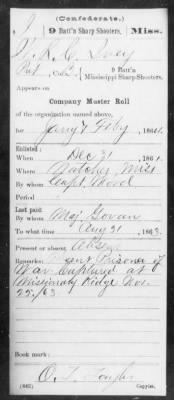 (Confederate.)
9 Batt'n Sharp Shooters, Miss.
Pvt
9 Batt'n
Mississippi Sharp Shooters.
Appears on
Company Muster Roll
of the organization named above,
for Jany & Feby, 1864.
Enlisted:
When Dec 31, 186
Where Natchez, Miss
By whom Capt. Wood
Period
Last paid:
By whom Maj. Govan
To what time Aug 31, 1863.
Present or absent Absent
Remarks: Prisoner of
War Captured at
Missionary Ridge Nov.
25/63
Book mark:
(642)
Copyist.